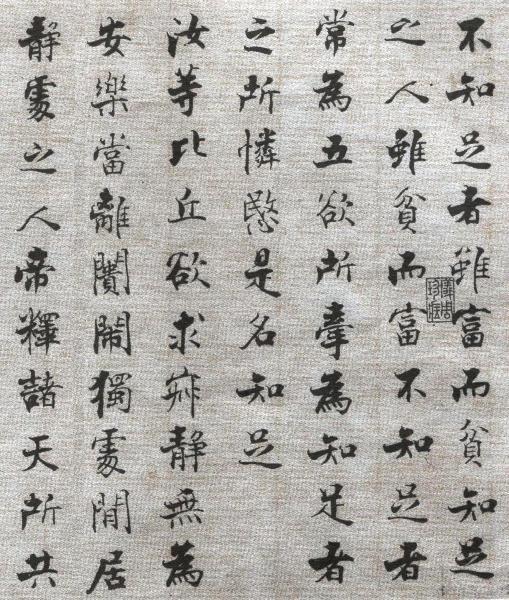 不知足者雖富而貧知足
之人雖貧而富不知足者
常為五欲所牽為知足者
之所憐愍是名知足
汝等比丘欲求寂靜無為
安樂當離闠鬧獨處閒居
靜處之人帝釋諸天所共